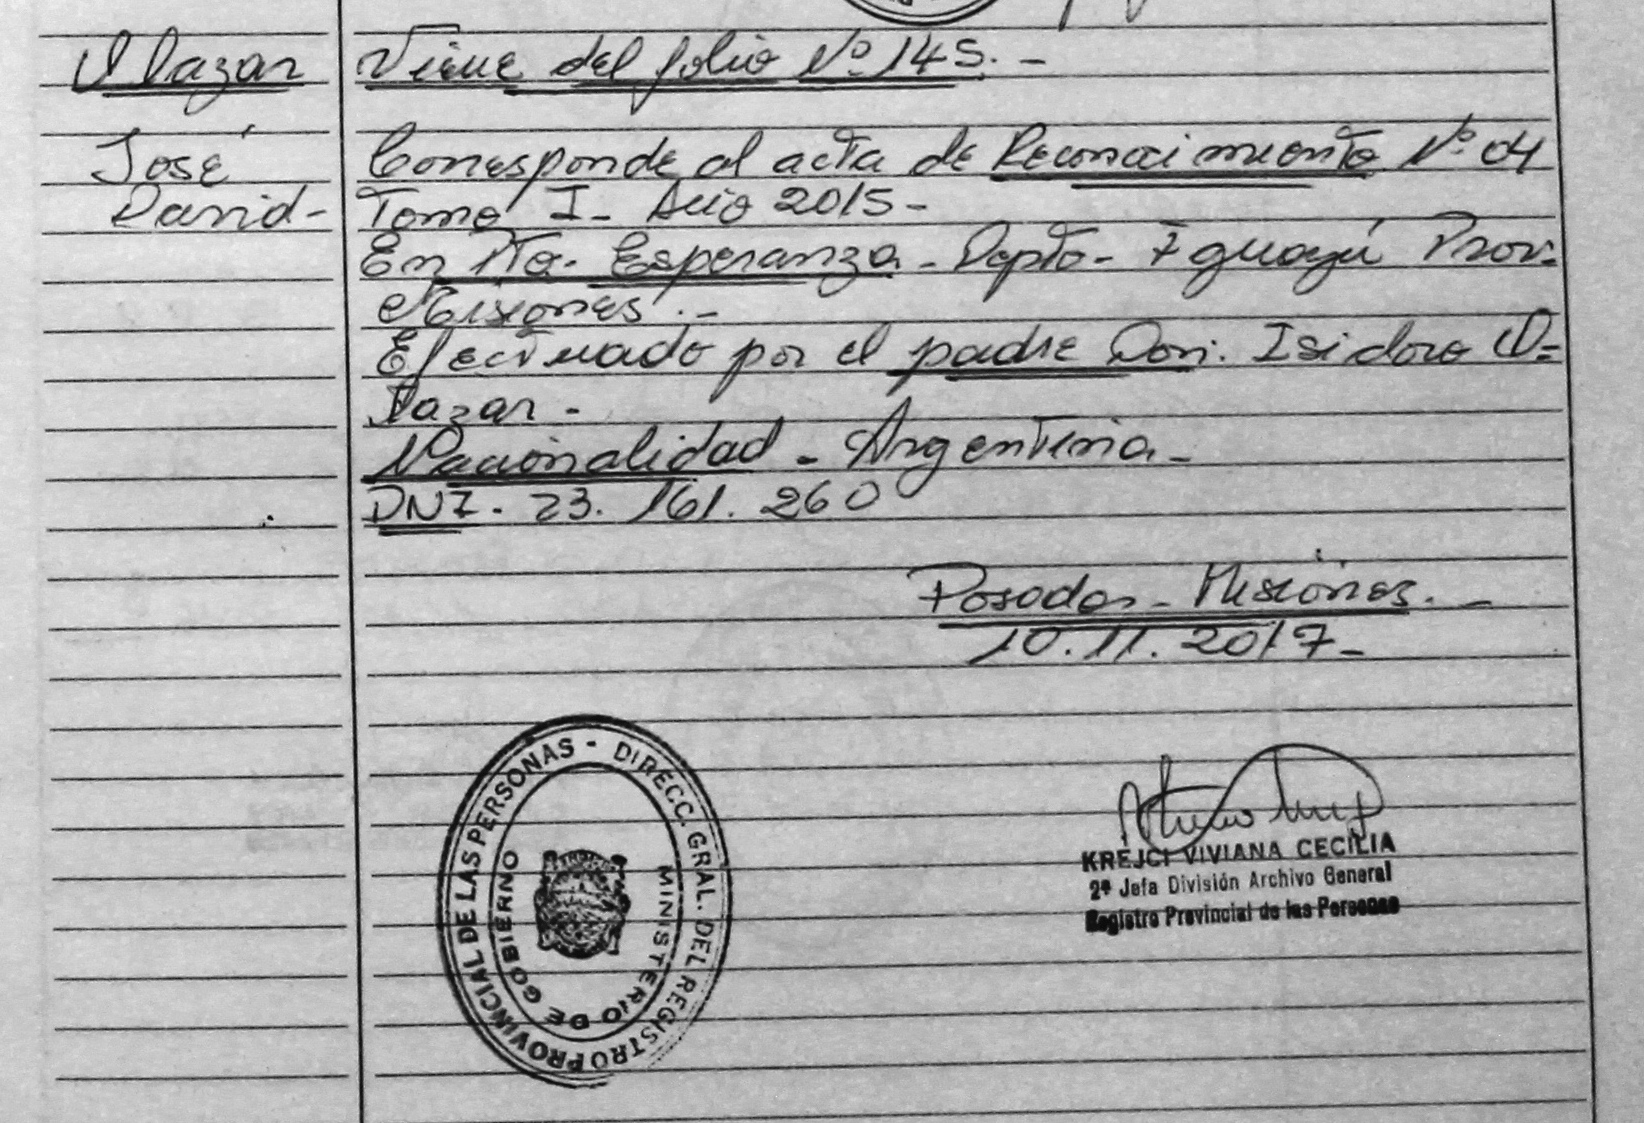 Olazar
Viene del folio Nº 145. -
José
David -
Corresponde al acta de Reconocimiento Nº 04
Tomo I - Año 2015 -
En Pto. Esperanza - Dpto - Iguazú Prov.
Misiones. -
Efectuado por el padre Don. Isidoro O=
lazar -
Nacionalidad - Argentina -
DNI - 23. 161. 260
Posadas - Misiones. -
10. 11. 2017 -
DIRECC. GRAL. DEL REGISTRO PROVINCIAL DE LAS PERSONAS -
MINISTERIO DE GOBIERNO
KREJCI VIVIANA CECILIA
2ª Jefa División Archivo General
Registro Provincial de las Personas